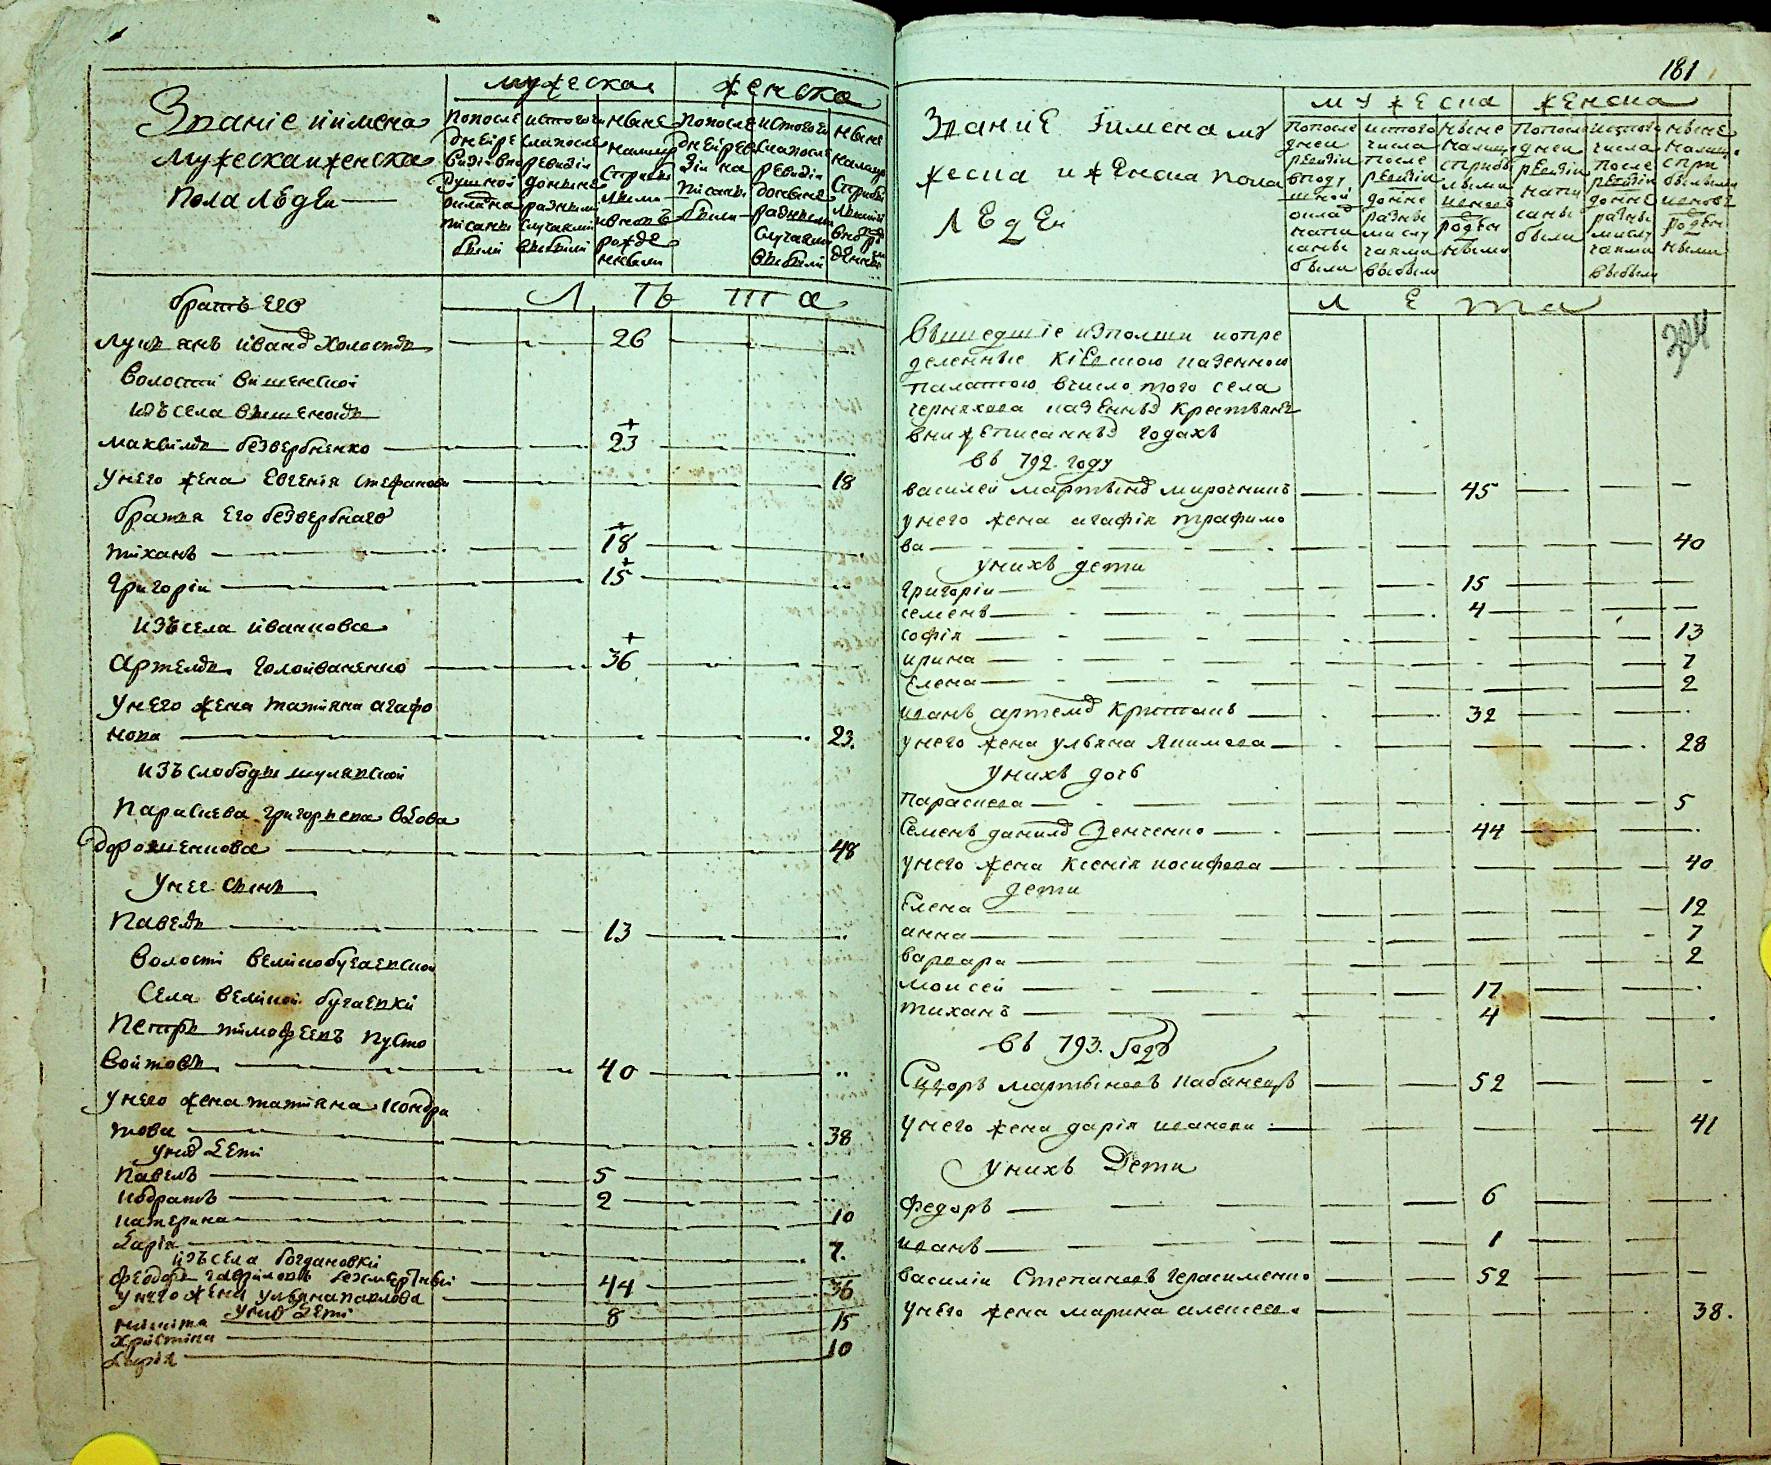 Званіе и имена
мужеска и женска
пола людеи
мужеска женска
попосле дней ре визіи впо душной окладъ написаны были
изтого числа после ревизіи доныне разными случаями выбыли
ныне налицо с прибылыми и вновь рожденными
попосле дней ревизіи написаны были
изтого числа после ревизіи доныне разными случаями выбыли
ныне налицо с прибылыми и вновь рожденными
Л Ѣ Т а
братъ его
лукянъ иванов холостъ 26
волости вышенской
изъ села вышенокъ
макъсимъ безвербненко 23
у него жена Евгенія Стефанова 18
братя его безвербнаго
тиханъ 18
григоріи 15
изъ села ивановка
артемъ голоиваненко 36
у него жена татіяна агафо
нова 23
изъ слободы шулявской
параскева григорьева вдова
дорошенкова 48
у нее сынъ
павелъ 13
волости великобугаевской
села великой бугаевки
петръ тимофеевъ пусто
войтовъ 40
у него жена татіяна кондра
това 38
у них дети
павелъ 5
кодратъ 2
катерина 10
дарія 7
изъ села богдановки
феодоръ гавриловъ безсмертный 44
у него жена ульяна павлова 36
у них дети
никита 8
христина 15
дарія 10
181
Званіе и имена му
жеска и женска пола
людеи
мужеска женска
попосле дней ревизіи вподушной оклад написаны были
изтого числа после ревизіи доныне разными случаями выбыли
ныне налицо с прибылыми и вновь рожденными
попосле дней ревизіи написаны были
изтого числа после ревизіи доныне разными случаями выбыли
ныне налицо с прибылыми и вновь рожденными
л е т а
вышедшіе изполши и опре
деленные кіевскою казенною
палатою вчисло того села
черняхова казенныхъ крестьянъ
внижеписанныхъ годахъ
въ 792. году
василей мартынов мирочникъ 45
у него жена агафія трафимо
ва 40
у нихъ дети
григоріи 15
семенъ 4
софія 13
ирина 7
Елена 2
иванъ артемов криттапъ 32
у него жена ульяна Якимова 28
у нихъ дочь
параскева 5
Семенъ данилов Зенченко 44
у него жена ксенія иосифова 40
дети
Елена 12
анна 7
варвара 2
моисей 17
тиханъ 4
въ 793. году
Сидоръ мартыновъ кабанецъ 52
у него жена дарія иванова 41
у нихъ Дети
федоръ 6
иванъ 1
василіи Степановъ герасименко 52
у него жена марина алексеева 38.